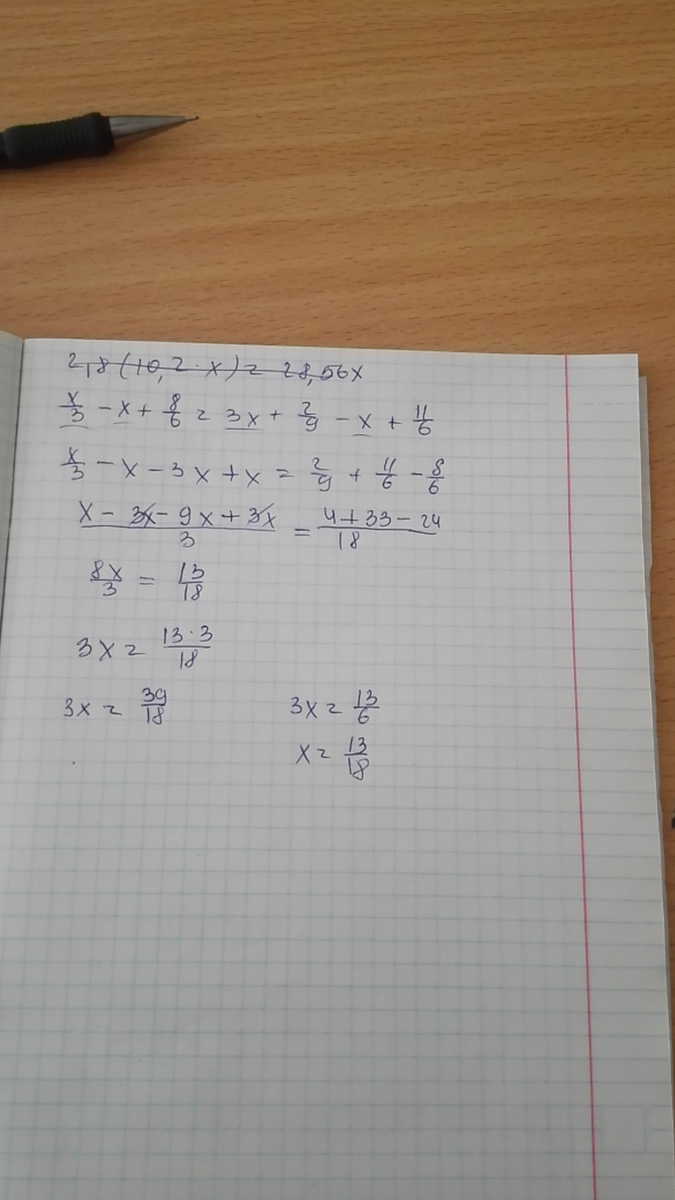 2,8(10,2·x)=28,56x
x/3 - x + 8/6 = 3x + 2/9 - x + 11/6
x/3 - x - 3x + x = 2/9 + 11/6 - 8/6
(x - 3x - 9x + 3x)/3 = (4+33-24)/18
8x/3 = 13/18
3x = (13·3)/18
3x = 39/18
3x = 13/6
x = 13/18